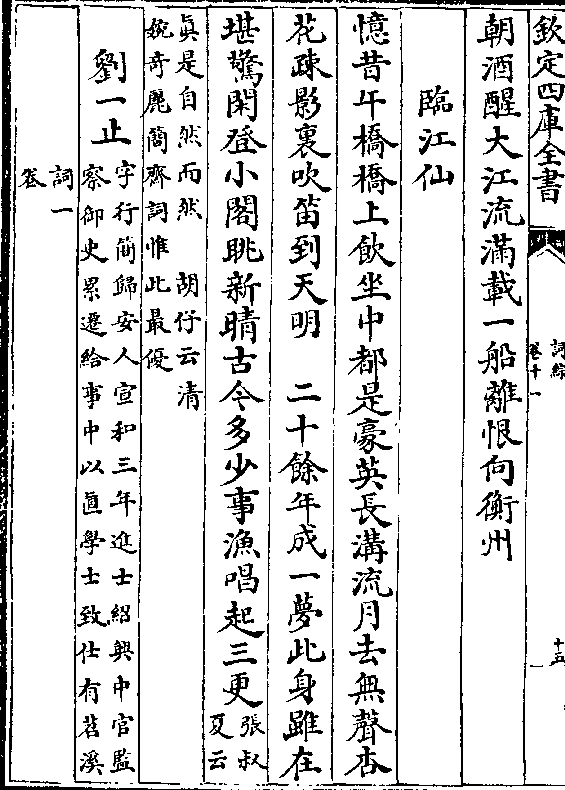 欽定四庫全書
詞綜
卷十一
十五
朝酒醒大江流滿載一船離恨向衡州
臨江仙
憶昔午橋橋上飲坐中都是豪英長溝流月去無聲杏
花疎影裏吹笛到天明　二十餘年成一夢此身雖在
堪驚閑登小閣眺新晴古今多少事漁唱起三更
張叔
夏云
真是自然而然　胡仔云清
婉奇麗簡齊詞惟此最優
劉一止
字行簡歸安人宣和三年進士紹興中官監
察御史累遷給事中以直學士致仕有苕溪
詞一
卷